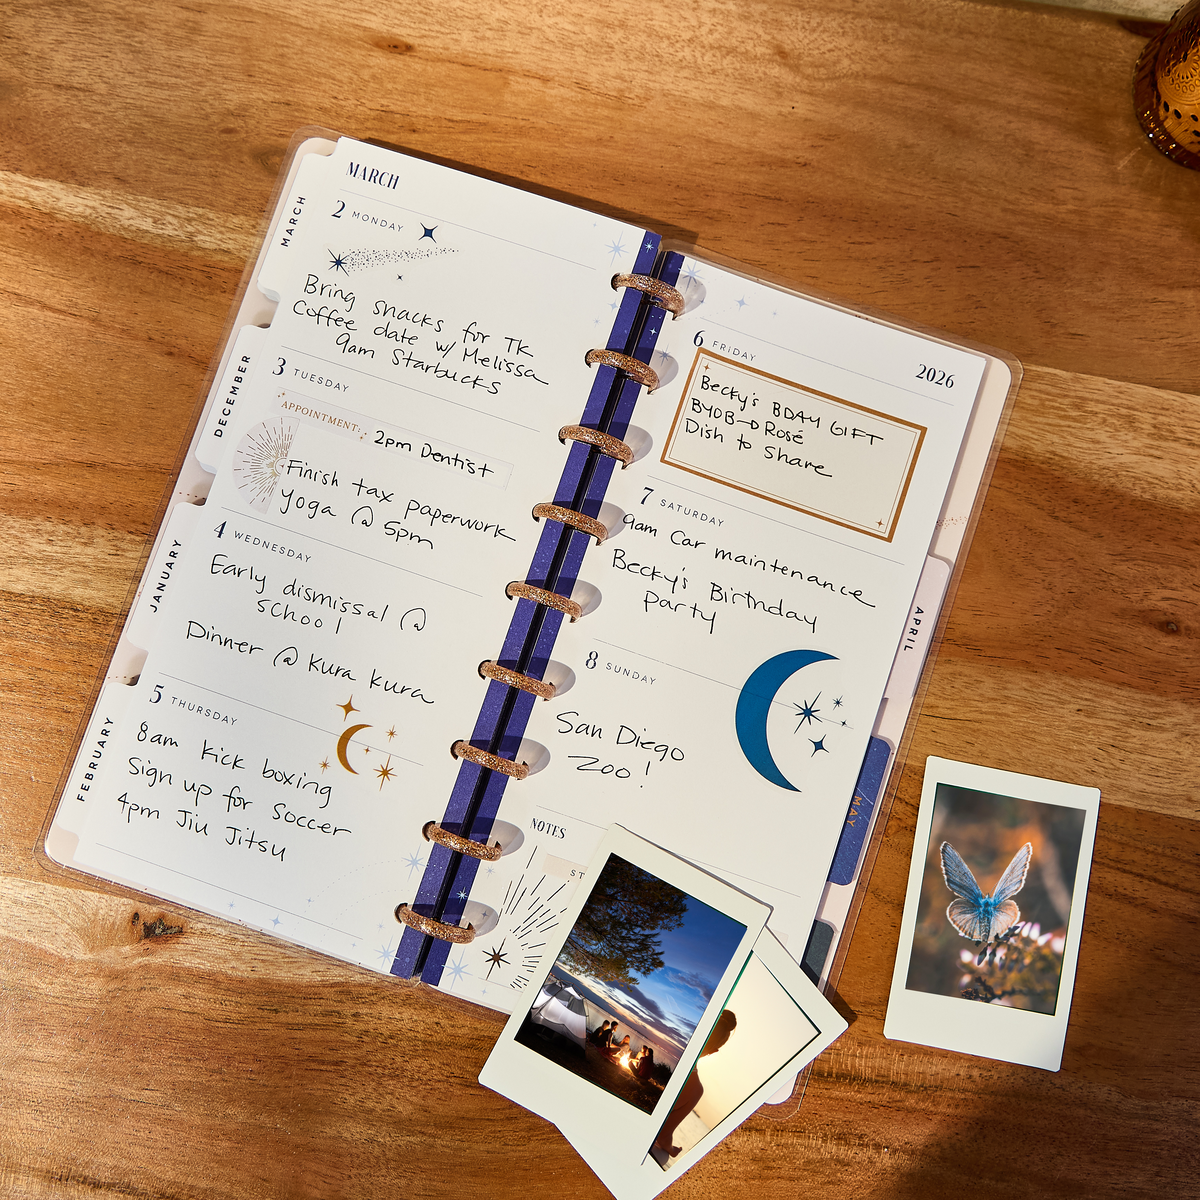 MARCH
MARCH
2 MONDAY
Bring snacks for TK
Coffee date w/ Melissa
9am Starbucks
DECEMBER
3 TUESDAY
APPOINTMENT: 2pm Dentist
Finish tax paperwork
Yoga @ 5pm
JANUARY
4 WEDNESDAY
Early dismissal @
school
Dinner @ Kura Kura
FEBRUARY
5 THURSDAY
8am Kick boxing
Sign up for soccer
4pm Jiu Jitsu
2026
6 FRIDAY
Becky's BDAY GIFT
BYOB→ Rosé
Dish to Share
7 SATURDAY
9am Car maintenance
Becky's Birthday
Party
APRIL
8 SUNDAY
San Diego
Zoo!
MAY
NOTES
ST